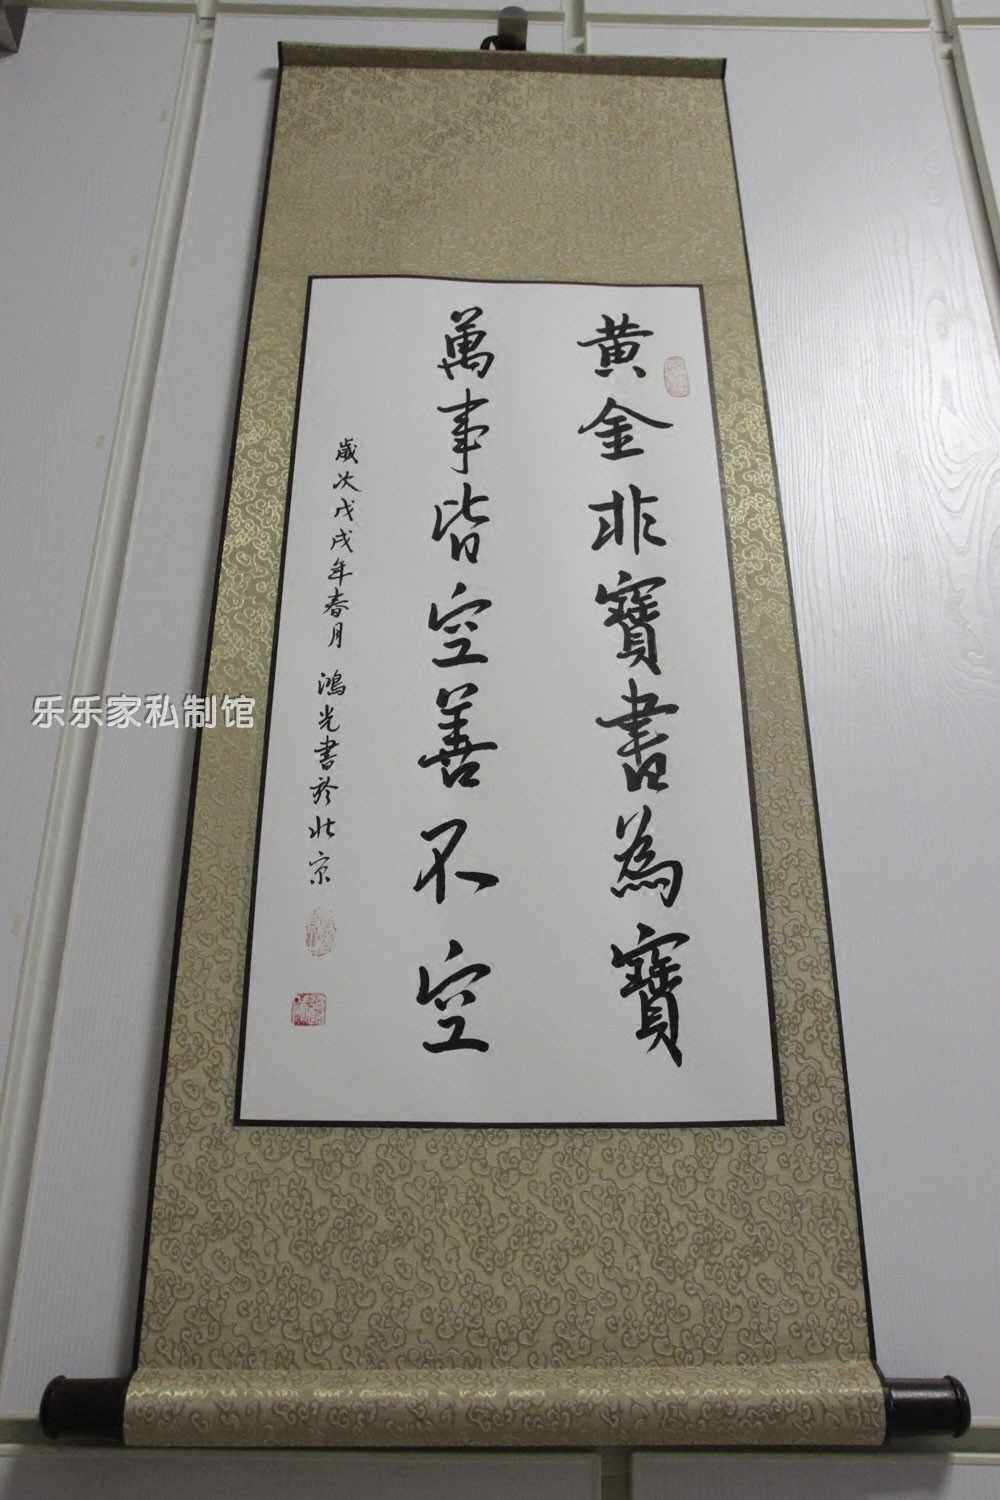 黄金非寶書為寶
萬事皆空善不空
歲次戊戌年春月 鴻光書於北京
乐乐家私制馆